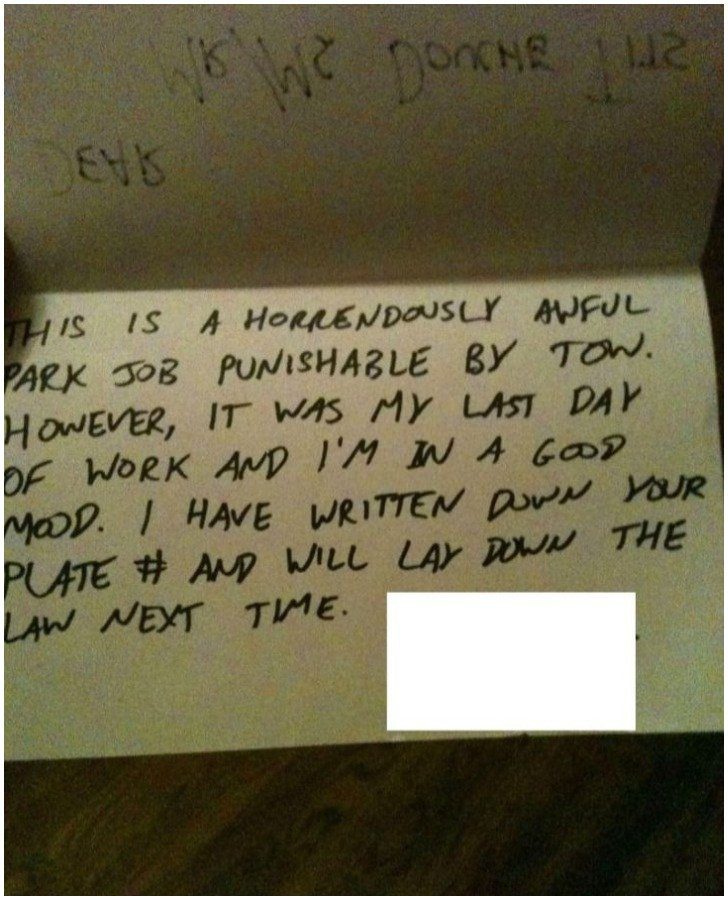 DEAR
MR/MS DOUCHE
THIS IS A HORRENDOUSLY AWFUL
PARK JOB PUNISHABLE BY TOW.
HOWEVER, IT WAS MY LAST DAY
OF WORK AND I'M IN A GOOD
MOOD. I HAVE WRITTEN DOWN YOUR
PLATE # AND WILL LAY DOWN THE
LAW NEXT TIME.